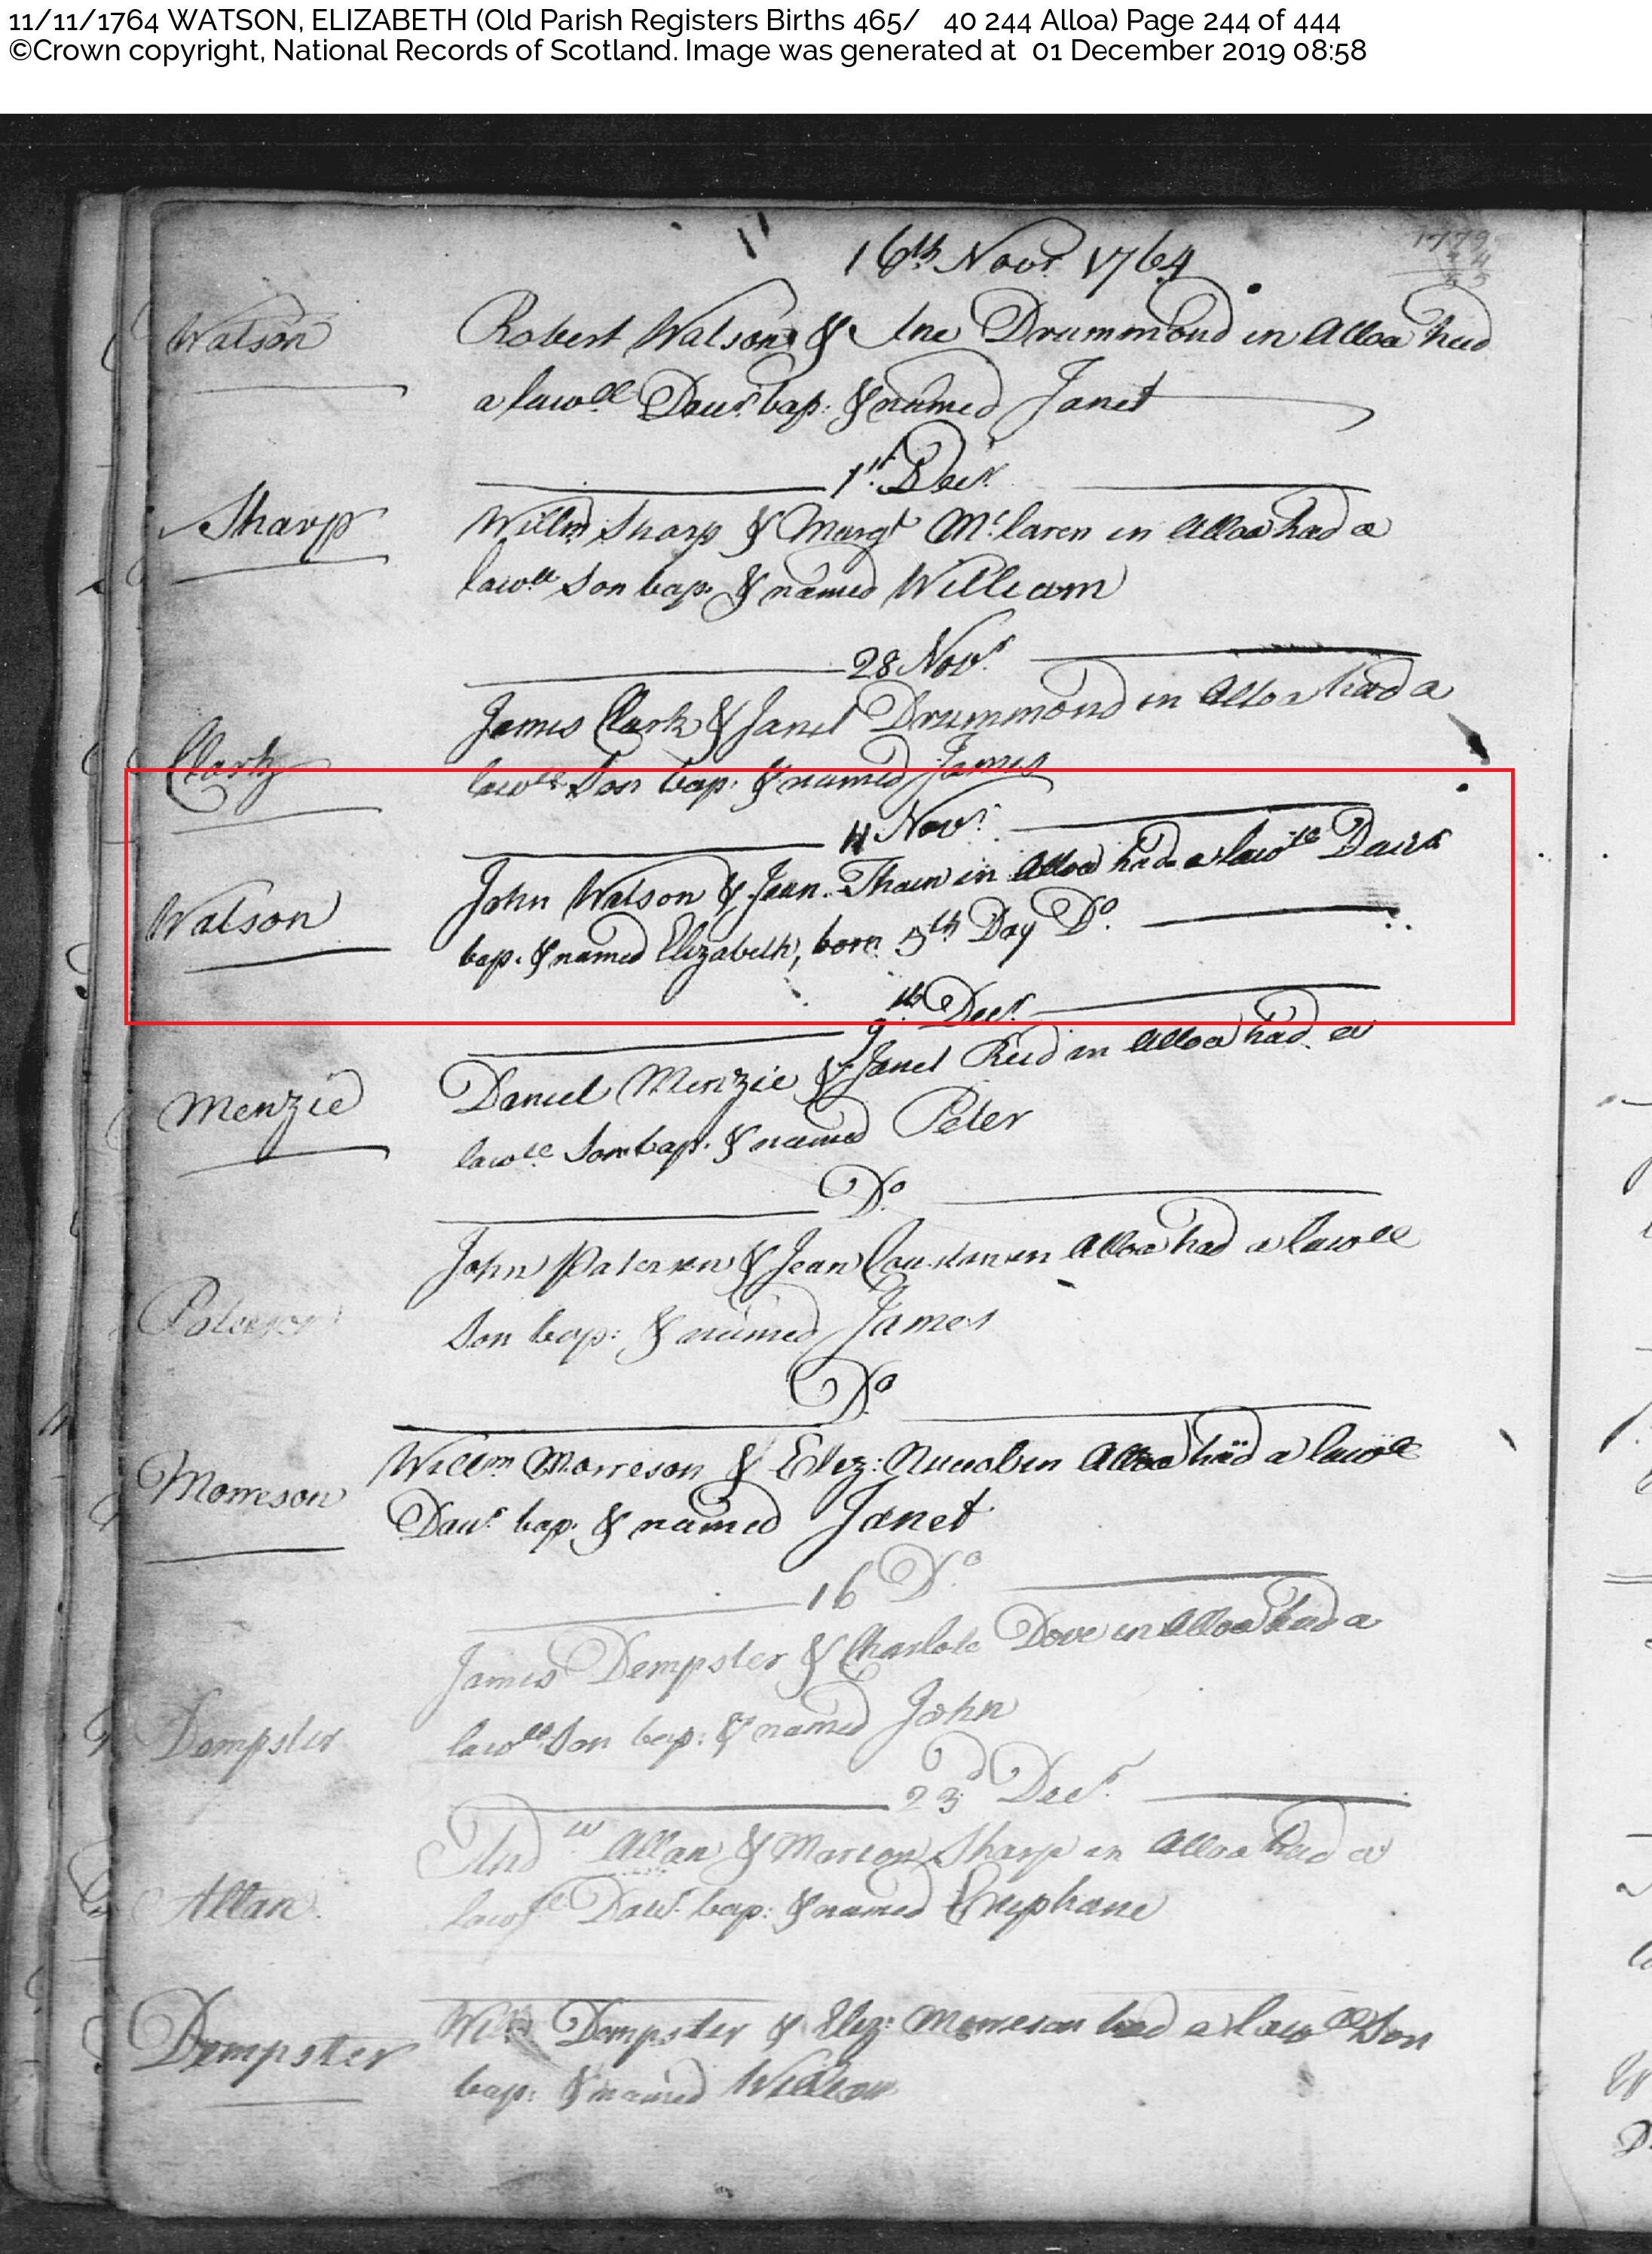 11/11/1764 WATSON, ELIZABETH (Old Parish Registers Births 465/ 40 244 Alloa) Page 244 of 444
©Crown copyright, National Records of Scotland. Image was generated at 01 December 2019 08:58
16th Novr. 1764
Watson Robert Watson & Drummond in Alloa had
a lawll Daur. bap: & named Janet
1st. Decr.
Sharp Willm Sharp & Margt Mclaren in Alloa had a
lawll Son bap. & named William
28 Novr.
James Clark & Janet Drummond in Alloa had a
Clark lawll Son bap. & named James
11 Novr.
John Watson & Jean Thain in Alloa had a lawll Daur
Watson bap. & named Elizabeth, born 5th Day Do.
9th Decr.
Daniel Menzie & Janet Reid in Alloa had a
Menzie lawll Son bap. & named Peter
Do
John Paterson & Jean in Alloa had a lawll
Paterson Son bap: & named James
Do
Willm Morreson & Eliz: in Alloa had a lawll
Morreson Daur. bap. & named Janet
16 Do
James Dempster & Charlote Dove in Alloa had a
Dempster lawll Son bap: & named John
23d Decr.
Andw Allan & Marion Sharp in Alloa had a
Allan lawfll Daur. bap: & named
Dempster Willm Dempster & Eliz: Morreson had a lawll Son
bap: & named William